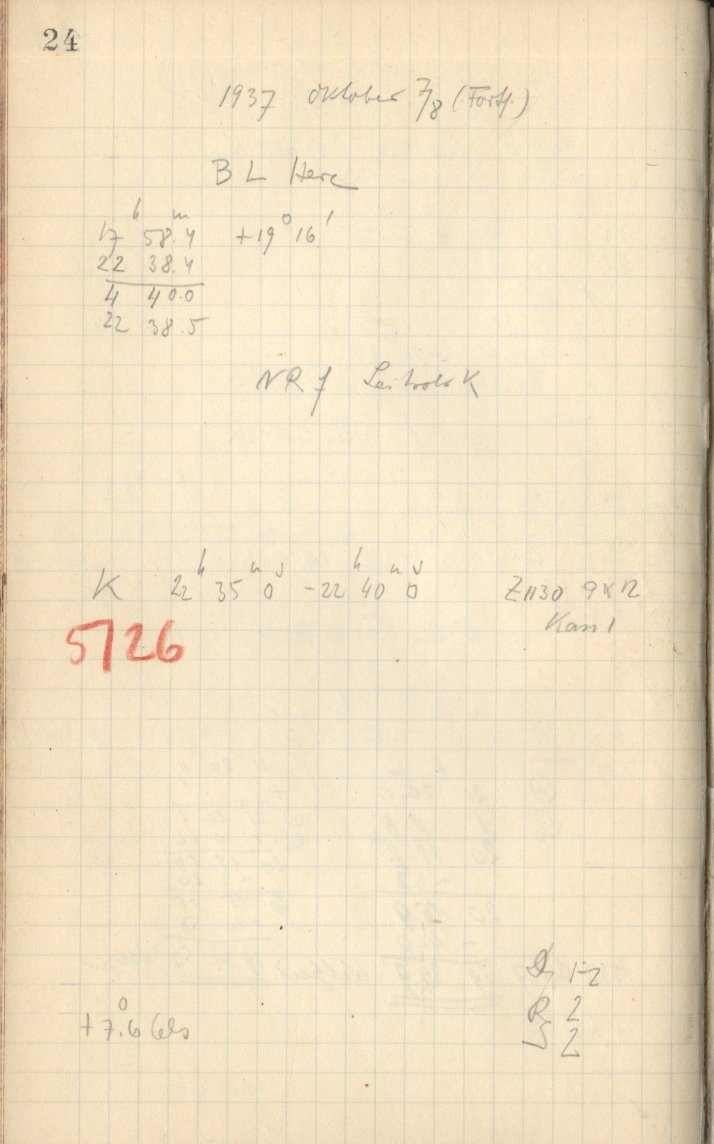 24
1937 Oktober 7/8 (Forts.)
BL Herc
17 h 58.4 m +19° 16'
22 38.4
4 40.0
22 38.5
NR f Leitrohr K
K 22 h 35 m 0 s - 22 h 40 m 0 s Z 1130 9x12
Kass 1
5726
D 1-2
R 2
S 2
+7.°6 Cels